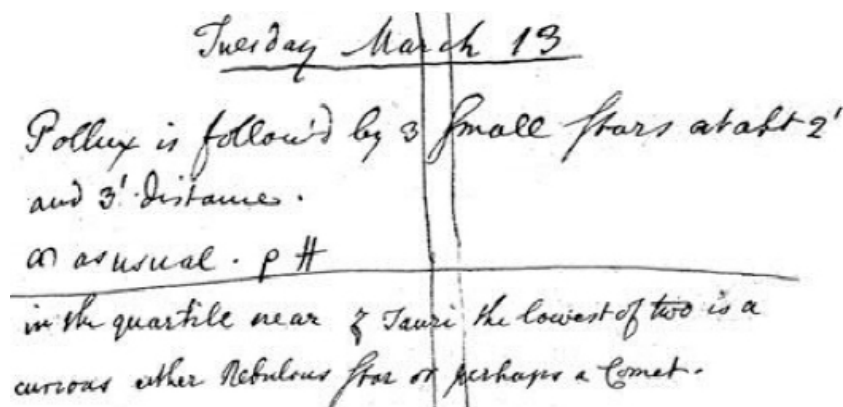 Tuesday March 13
Pollux is follow'd by 3 Small Stars at abt 2'
and 3' distance.
♂ as usual. p #
in the quartile near ζ Tauri the lowest of two is a
curious either Nebulous Star or perhaps a Comet.